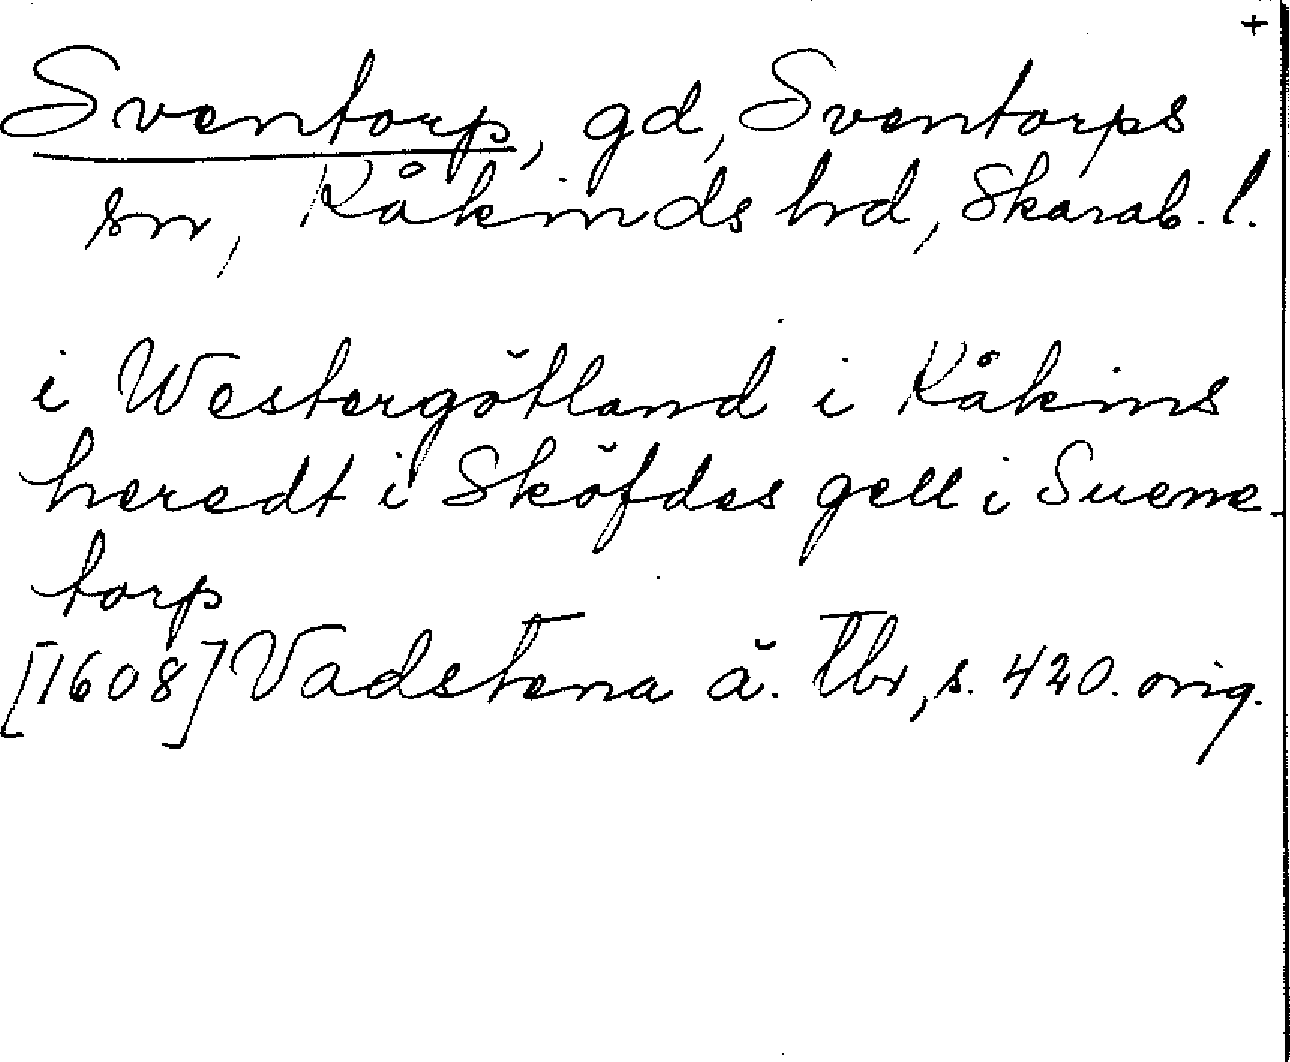 +
Sventorp, gd, Sventorps
sn, Kåkinds hd, Skarab. l.
i Westergötland i Kåkins
heredt i Sköfdes gell i Suene-
torp
[1608] Vadstena ä. tbr, s. 420. orig.